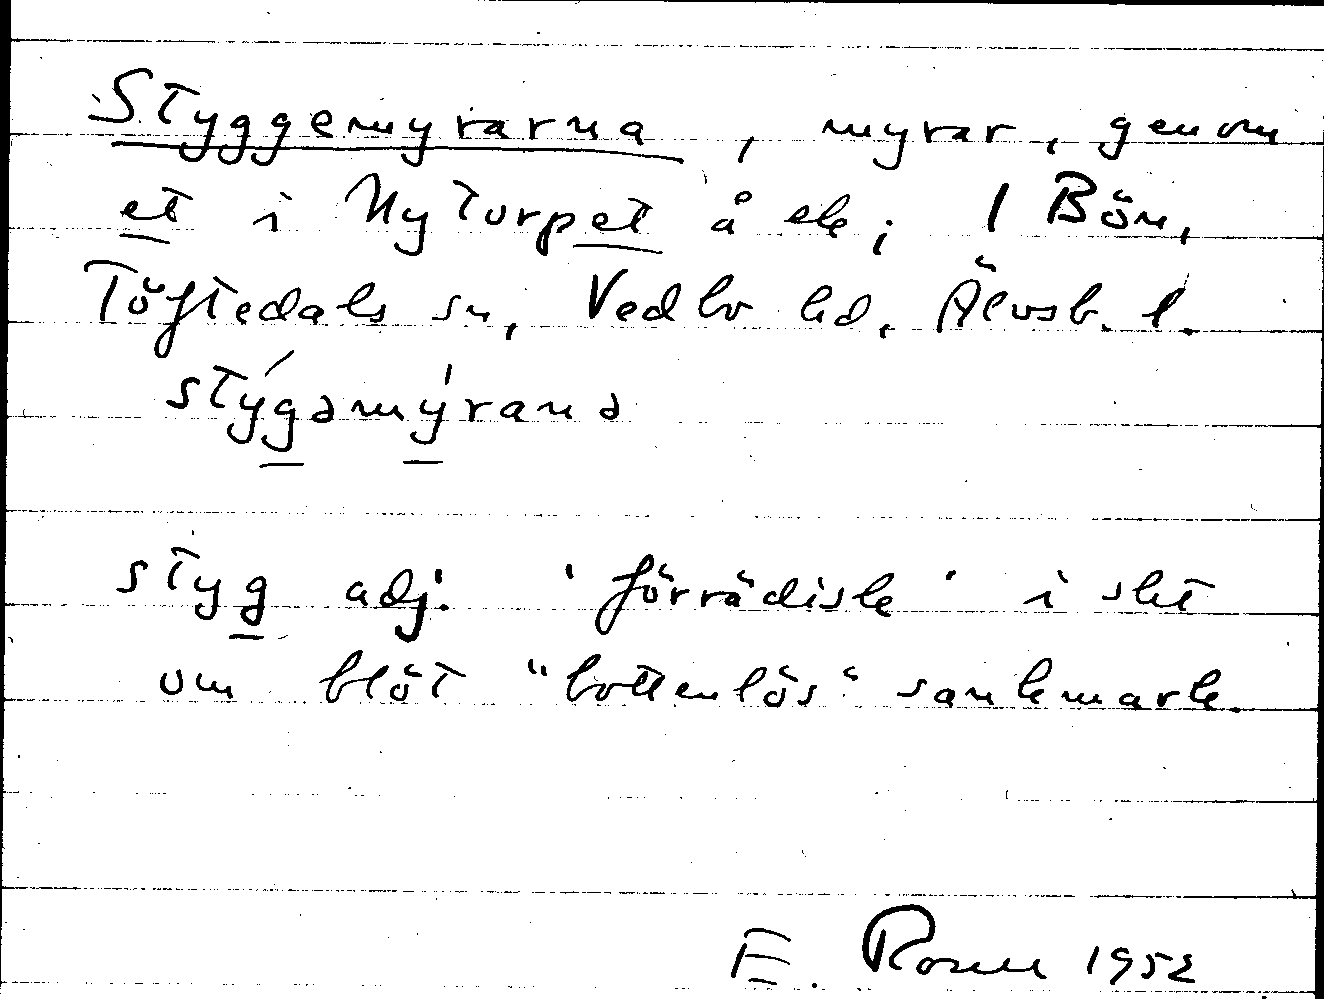 Styggemyrarna, myrar, genom
et i Nytorpet å ek; 1 Bön,
Töftedals sn, Vedbo hd, Älvsb. l.
stýgəmýrana
styg adj. 'förrädisk' i sht
om blöt "bottenlös" sankmark.
E. 1952